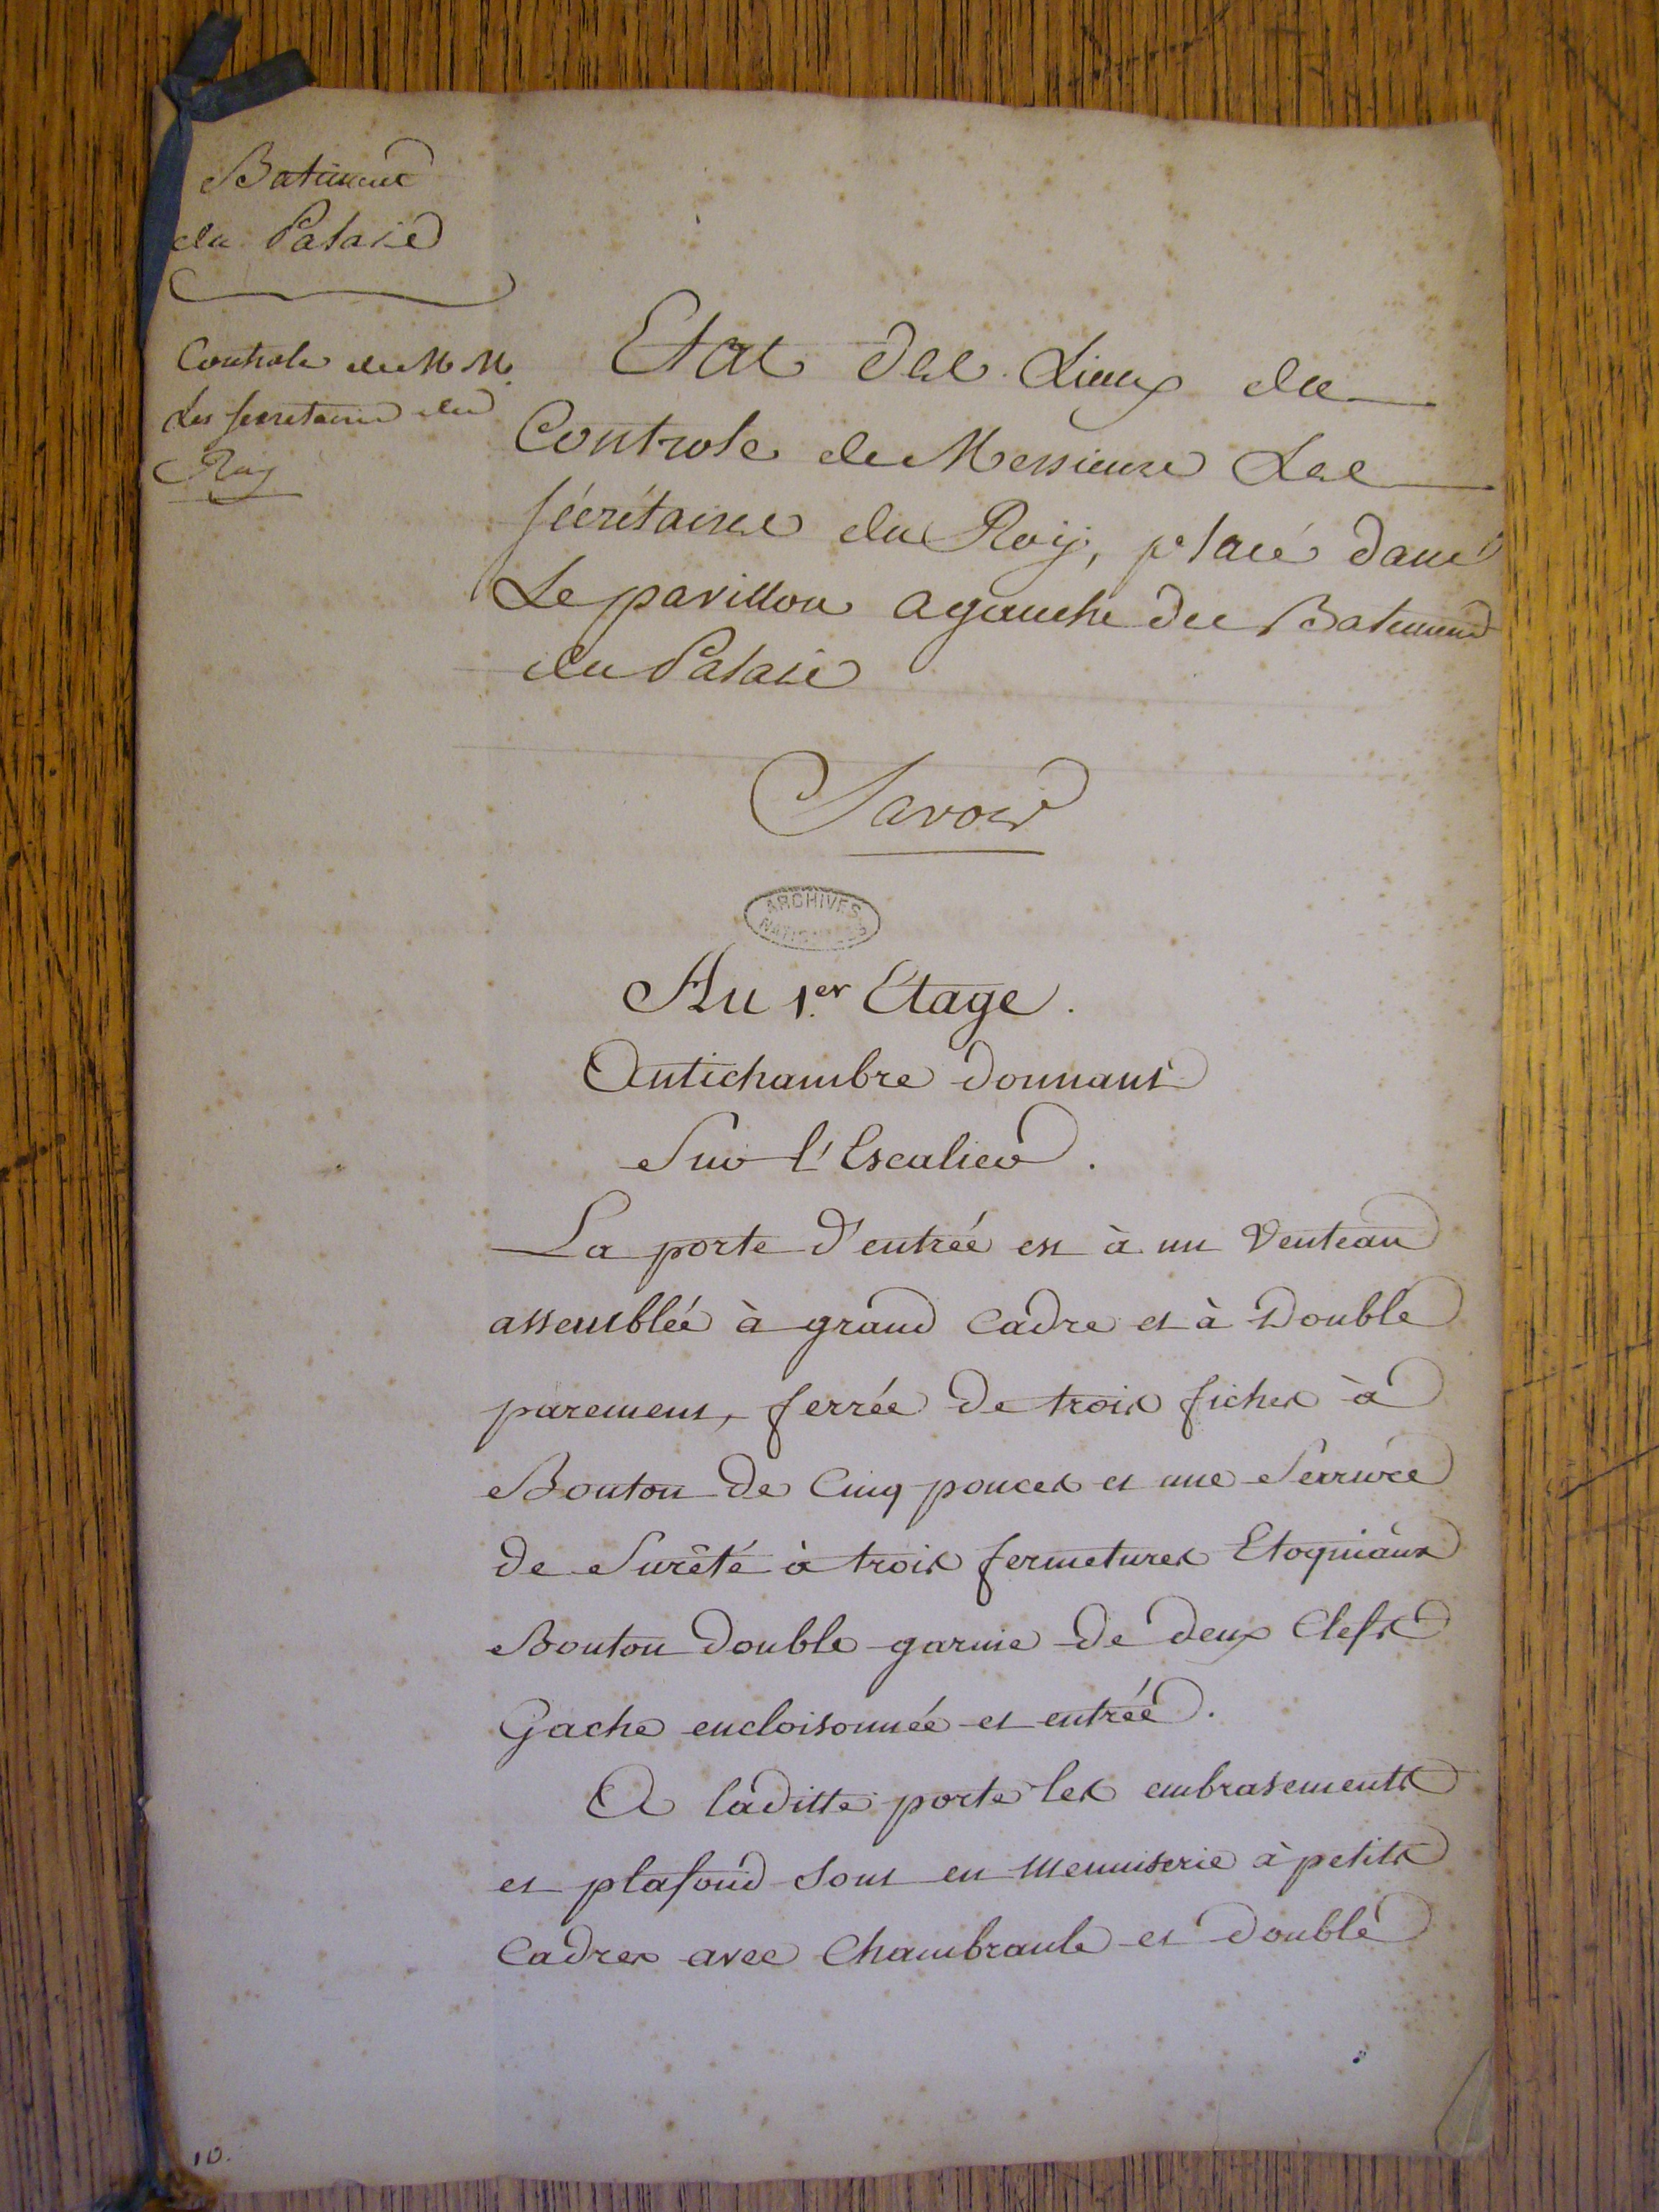 Batiment
du Palais
Controle de M M.
Les secretaires du
Roy
Etat des Lieux du
Controle de Messieurs Les
sécrétaires du Roy, placé dans
Le pavillon a gauche du Batiment
du Palais
Savoir
ARCHIVES
NATIONALES
Au 1.er Etage.
Antichambre donnant
Sur l'Escalier.
La porte d'entrée est à un Venteau
assemblée à grand Cadre et à Double
parement, ferrée de trois fiches à
Bouton de Cinq pouces et une Serrure
de Sureté à trois fermetures Etoquiaux
Bouton double garnie de deux Clefs
Gache encloisonnée et entrée.
A laditte porte les embrasements
et plafond sont en Menuiserie à petits
Cadres avec Chambranle et doublé
10.